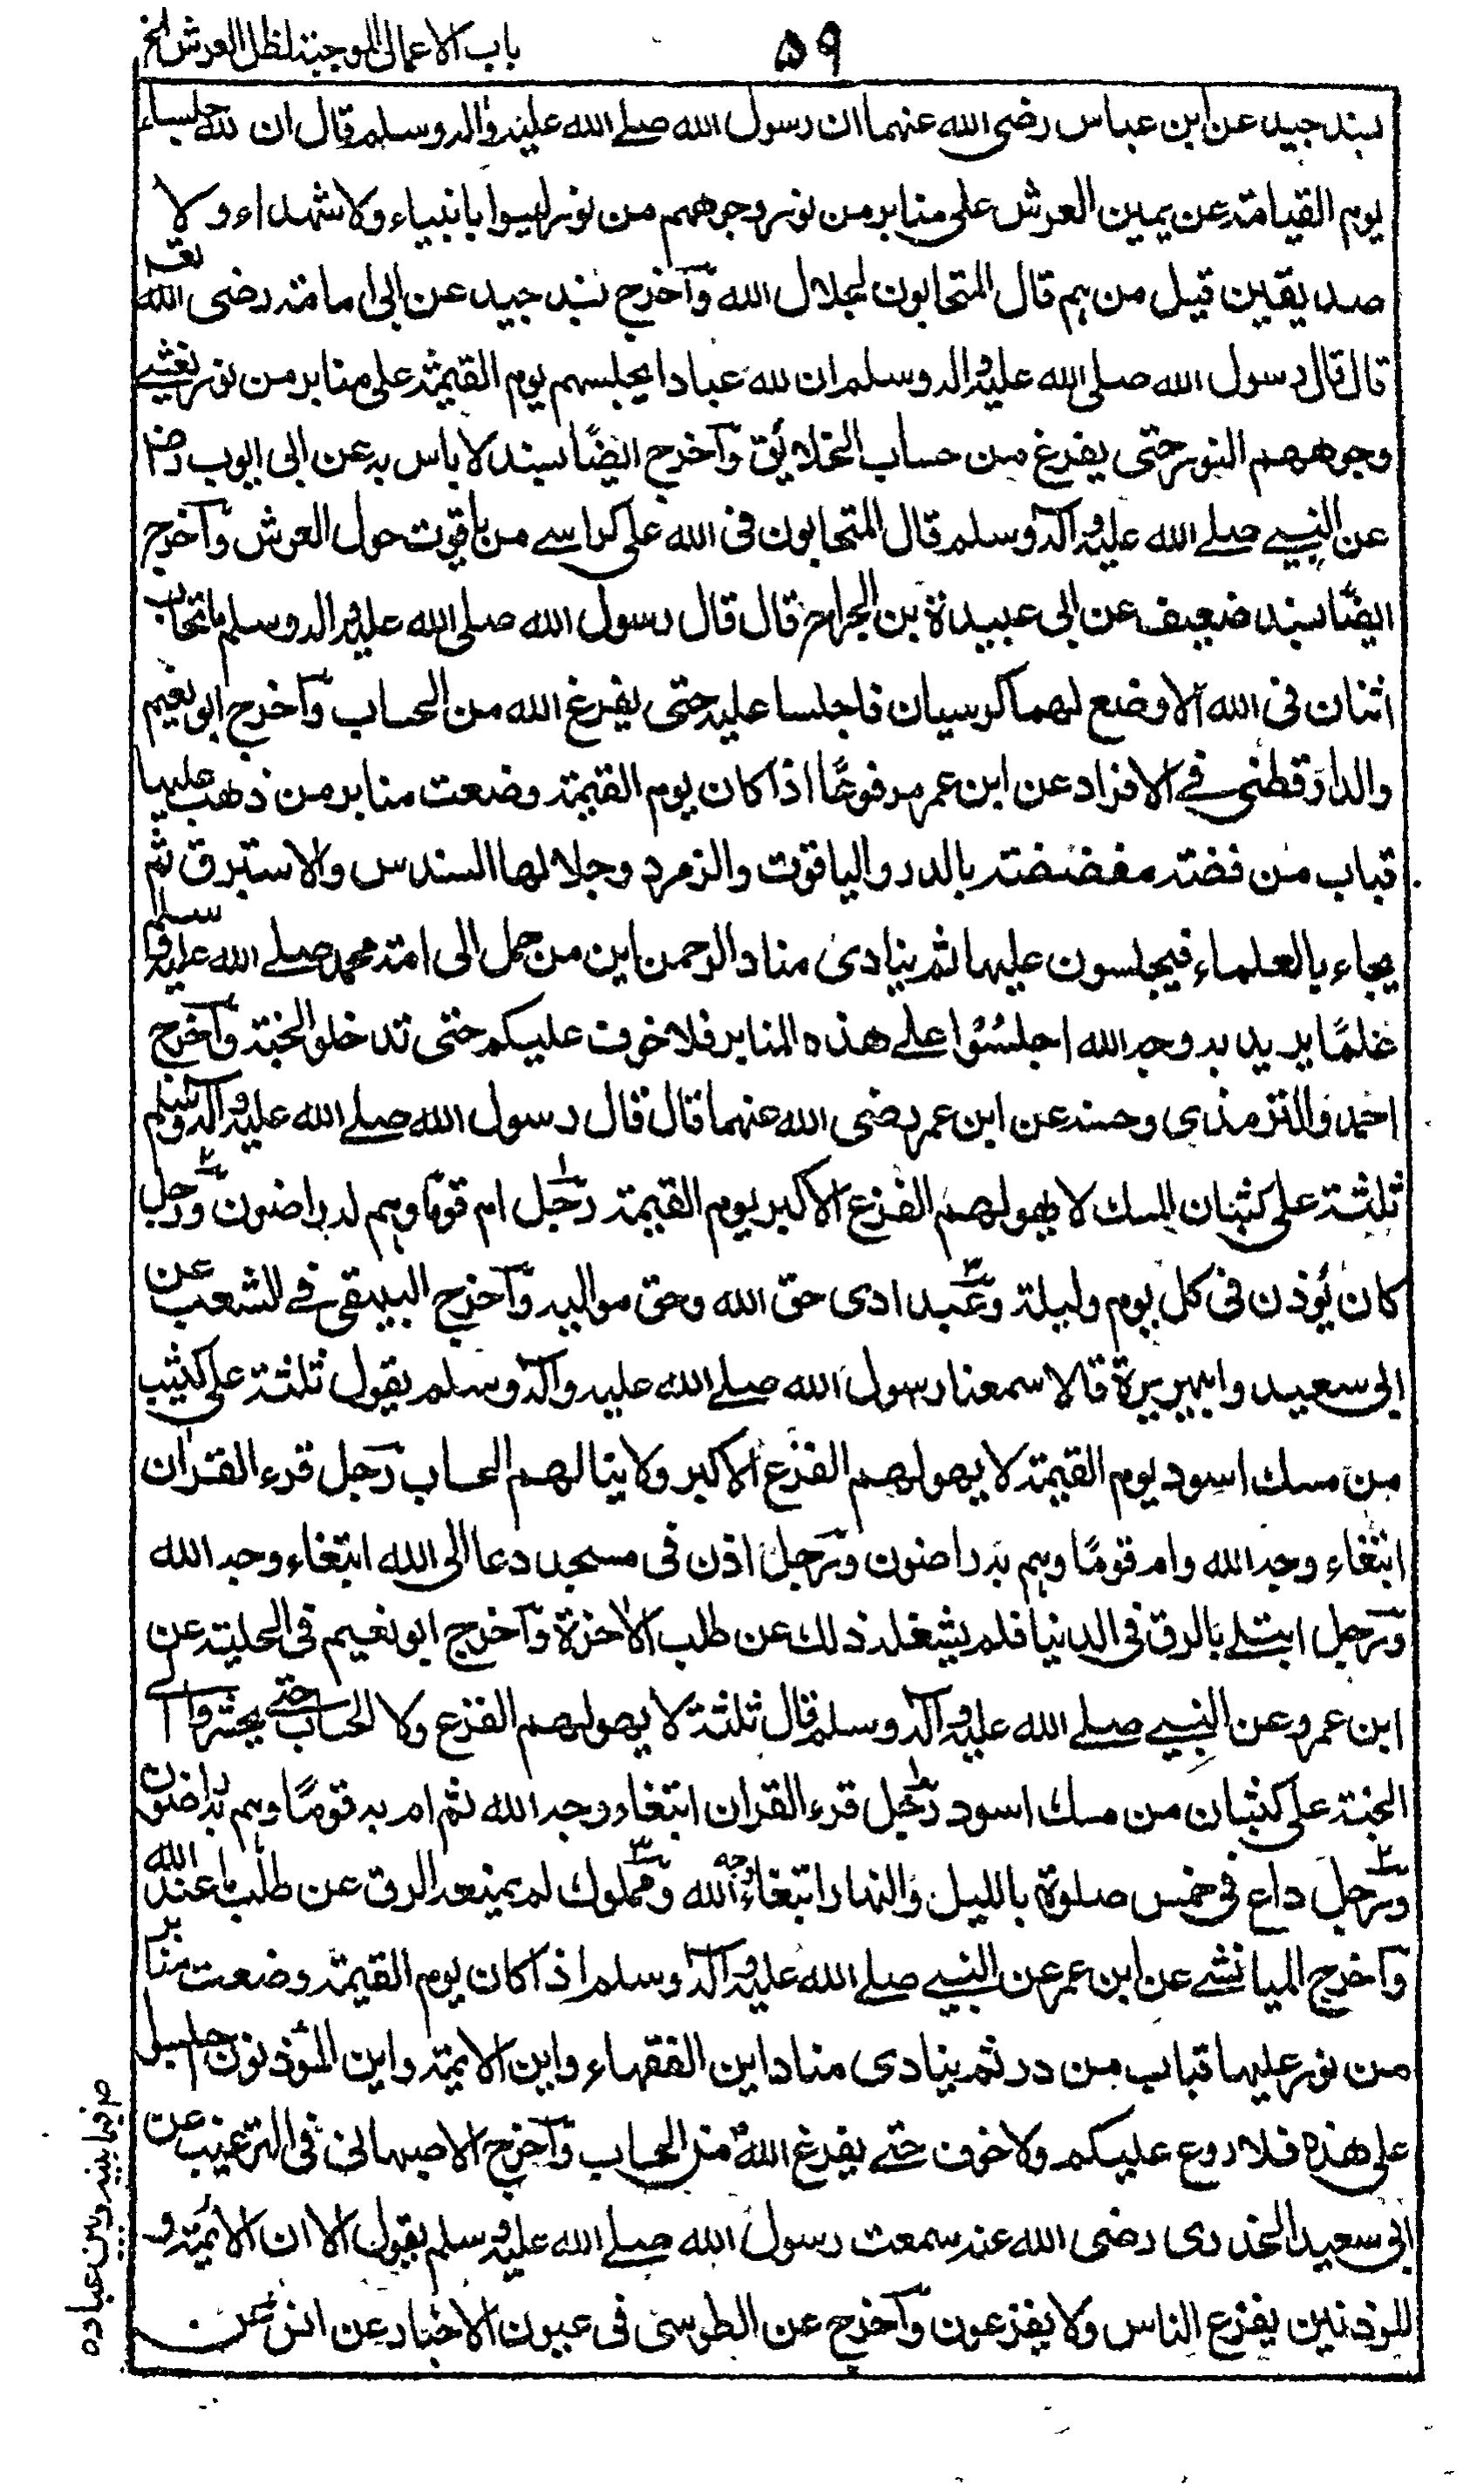 باب الاعمال الموجبة لظل العرش الخ
٥٩
بسند جيد عن ابن عباس رضى الله عنهما ان رسول الله صلے الله عليه واله وسلم قال ان لله جلساء
يوم القيامة عن يمين العرش على منابر من نور وجوههم من نور ليسوا بانبياء ولا شهداء ولا
صديقين قيل من هم قال المتحابون لجلال الله وآخرج بسند جيد عن ابى امامة رضى الله تعـ
قال قال رسول الله صلى الله عليه واله وسلم ان لله عبادا يجلسهم يوم القيمة على منابر من نور يغشے
وجوههم النور حتى يفرغ من حساب الخلائق وآخرج ايضًا بسند لا باس به عن ابى ايوب رضـ
عن النبے صلے الله عليه وآله وسلم قال المتحابون فى الله على كراسے من ياقوت حول العرش وآخرج
ايضًا بسند ضعيف عن ابى عبيدة بن الجراح قال قال رسول الله صلى الله عليه واله وسلم ما تحاب
اثنان فى الله الا وضع لهما كرسيان فاجلسا عليه حتى يفرغ الله من الحساب وآخرج ابو نعيم
والدارقطنى فے الافراد عن ابن عمر مرفوعًا اذا كان يوم القيمة وضعت منابر من ذهب عليها
قباب من فضة مفضضة بالدر والياقوت والزمرد وجلالها السندس والاستبرق ثم
يجاء بالعلماء فيجلسون عليها ثم ينادى مناد الرحمن اين من حمل الى امة محمد صلے الله عليه وسلم
علمًا يريد به وجه الله اجلسُوْا علے هذه المنابر فلا خوف عليكم حتى تدخلو الجنة وآخرج
احمد والترمذى وحسنه عن ابن عمر رضى الله عنهما قال قال رسول الله صلے الله عليه وآله وسلم
ثلثة على كثبان المسك لا يهولهم الفزع الاكبر يوم القيمة رجل ام قومًا وهم له راضون ورجل
كان يؤذن فى كل يوم وليلة وعبد ادى حق الله وحق مواليه وآخرج البيهقى فے الشعب عن
ابى سعيد وابيهريرة قالا سمعنا رسول الله صلے الله عليه وآله وسلم يقول ثلثة على كثيب
من مسك اسود يوم القيمة لا يهولهم الفزع الاكبر ولا ينالهم الحساب رجل قرء القران
ابتغاء وجه الله وام قومًا وهم به راضون ورجل اذن فى مسجد دعا الى الله ابتغاء وجه الله
ورجل ابتلے بالرق فى الدنيا فلم يشغله ذلك عن طلب الاخرة وآخرج ابو نعيم فى الحلية عن
ابن عمر وعن النبے صلے الله عليه وآله وسلم قال ثلثة لا يهولهم الفزع ولا الحساب حتے يحشروا الى
الجنة على كثبان من مسك اسود رجل قرء القران ابتغاء وجه الله ثم ام به قومًا وهم به راضون
ورجل داع فى خمس صلوة بالليل والنهار ابتغاء وجه الله ومملوك لم يمنعه الرق عن طلب ما عند الله
وآخرج الميانشے عن ابن عمر عن النبے صلے الله عليه وآله وسلم اذا كان يوم القيمة وضعت منابر
من نور عليها قباب من در ثم ينادى مناد اين الفقهاء واين الايمة واين المؤذنون اجلسوا
على هذه فلا روع عليكم ولا خوف حتے يفرغ الله من الحساب وآخرج الاصبهانى فى الترغيب عن
ابى سعيد الخدرى رضى الله عنه سمعت رسول الله صلے الله عليه وسلم يقول الا ان الائمة و
المؤذنين يفزع الناس ولا يفزعون وآخرج عن الطوسى فى عيون الاخبار عن انس عن
فيما بينه وبين عباده